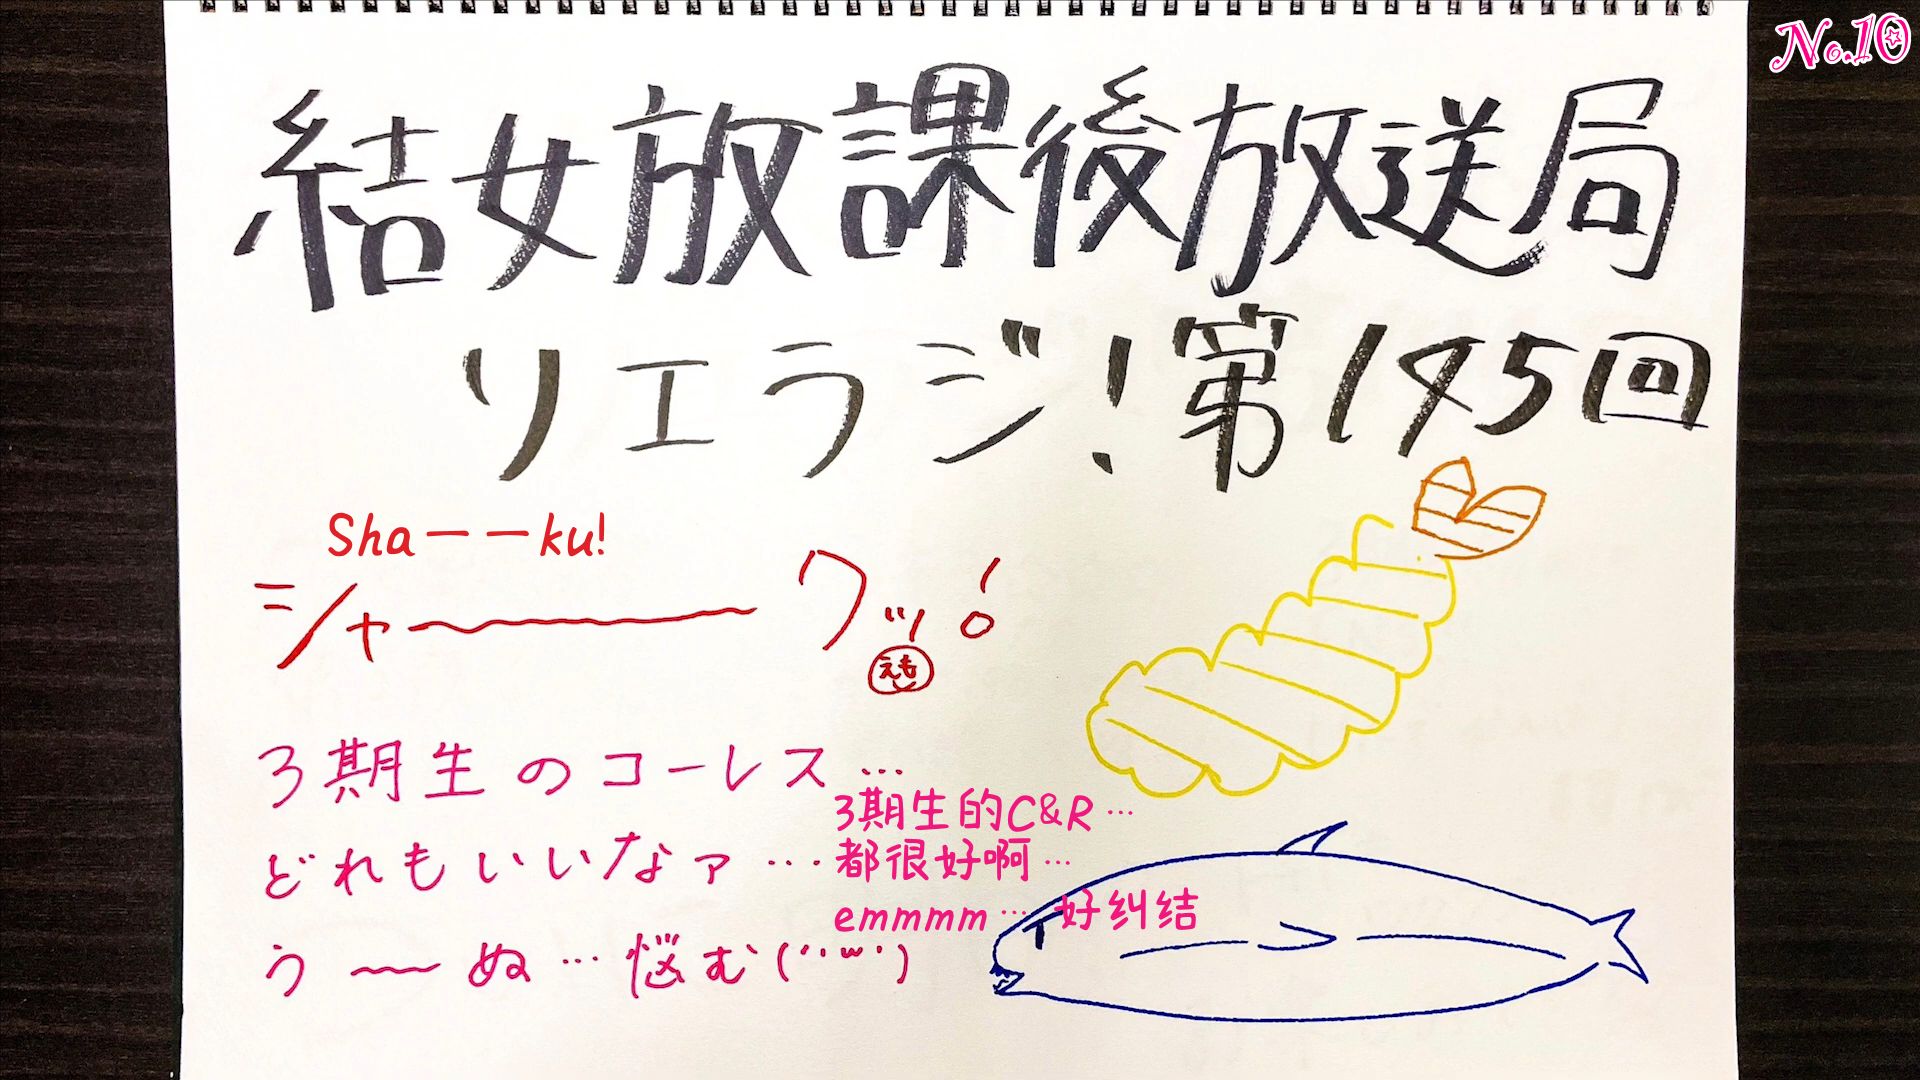 No.10
結女放課後放送局
リエラジ！第145回
Sha——ku!
シャー〜〜クッ！
えも
3期生のコーレス…
3期生的C&R…
どれもいいなァ…
都很好啊…
emmmm…好纠结
う〜〜ぬ…悩む(´･ω･`)